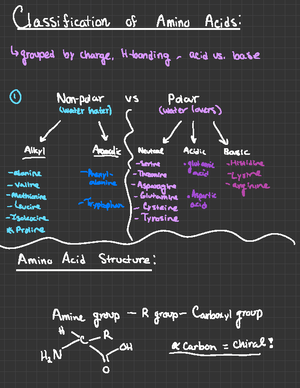 Classification of Amino Acids:
↳ grouped by charge, H-bonding, acid vs. base
① Nonpolar vs Polar
(water hater) (water lovers)
Alkyl Aromatic Neutral Acidic Basic
- alanine
- Valine
- Methionine
- Leucine
- Isoleucine
* Proline
- Phenyl-
alanine
- Tryptophan
- Serine
- Threonine
- Asparagine
- Glutamine
- Cysteine
- Tyrosine
- glutamic
acid
- Aspartic
acid
- Histidine
- Lysine
- arginine
Amino Acid Structure:
Amine group - R group - Carboxyl group
H
C
R
H₂N
OH
O
α Carbon = chiral!